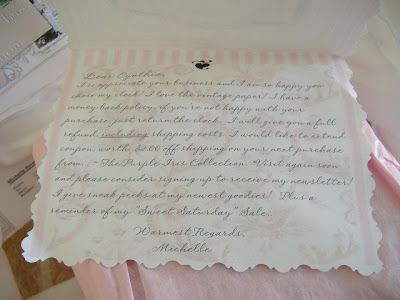 Dear Cynthia,
I so appreciate your business and I am so happy you
chose my clock! I love the vintage paper! I have a
money back policy, if you're not happy with your
purchase, just return the clock. I will give you a full
refund, including shipping costs. I would like to extend
coupon, worth $2.00 off shipping on your next purchase
from... ~ The Purple Iris Collection. Visit again soon
and please consider signing up to receive my newsletter!
I give sneak peeks at my newest goodies! Plus a
reminder of my "Sweet Saturday" Sale.
Warmest Regards,
Michelle